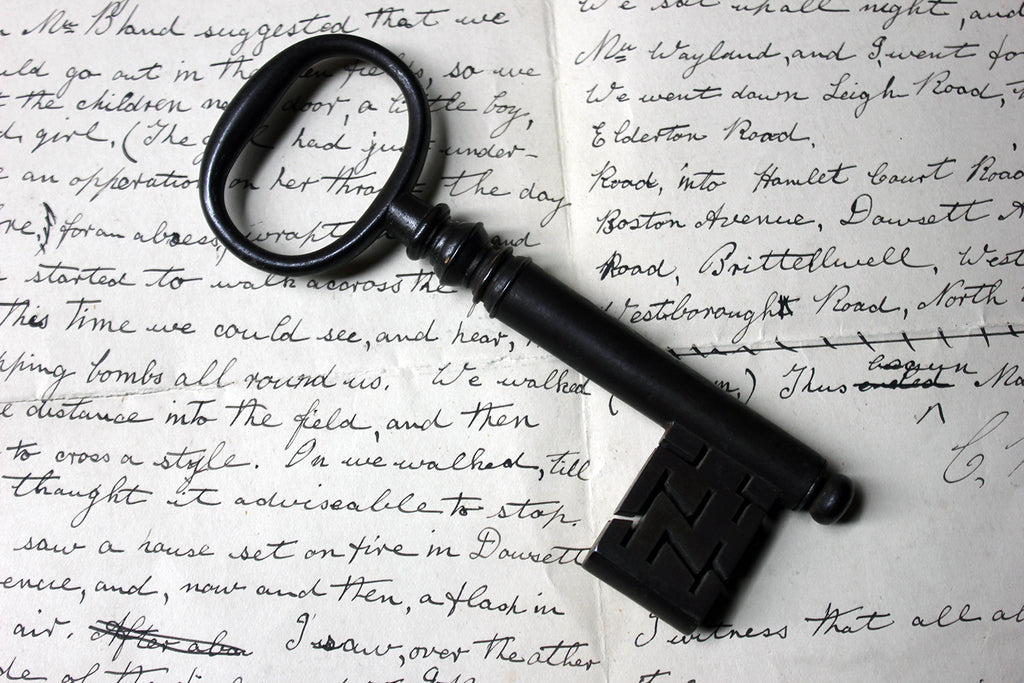 Mr. Bland suggested that we
go out in the fields, so we
the children door, a little boy,
girl. (The girl had just under-
an opperation on her the day
for an abcess, wrapt and
started to walk accorss the
This time we could see, and hear,
bombs all round us. We walked
distance into the field, and then
to cross a style. On we walked, till
thought it adviseable to stop.
saw a house set on fire in Dowsett
and, now and then, a flash in
air. I saw, over the other
We sat up all night, and
Mr. Wayland, and I, went fo
We went down Leigh Road,
Elderton Road.
Road, into Hamlet Court Road
Boston Avenue, Dowsett A
Road, Brittellwell, West
Westborough Road, North
begun
m.) Thus ended Ma
C.
I witness that all a